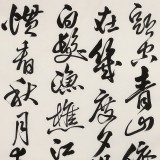 頭空青山依
在幾度夕
白髮漁樵江
慣看秋月